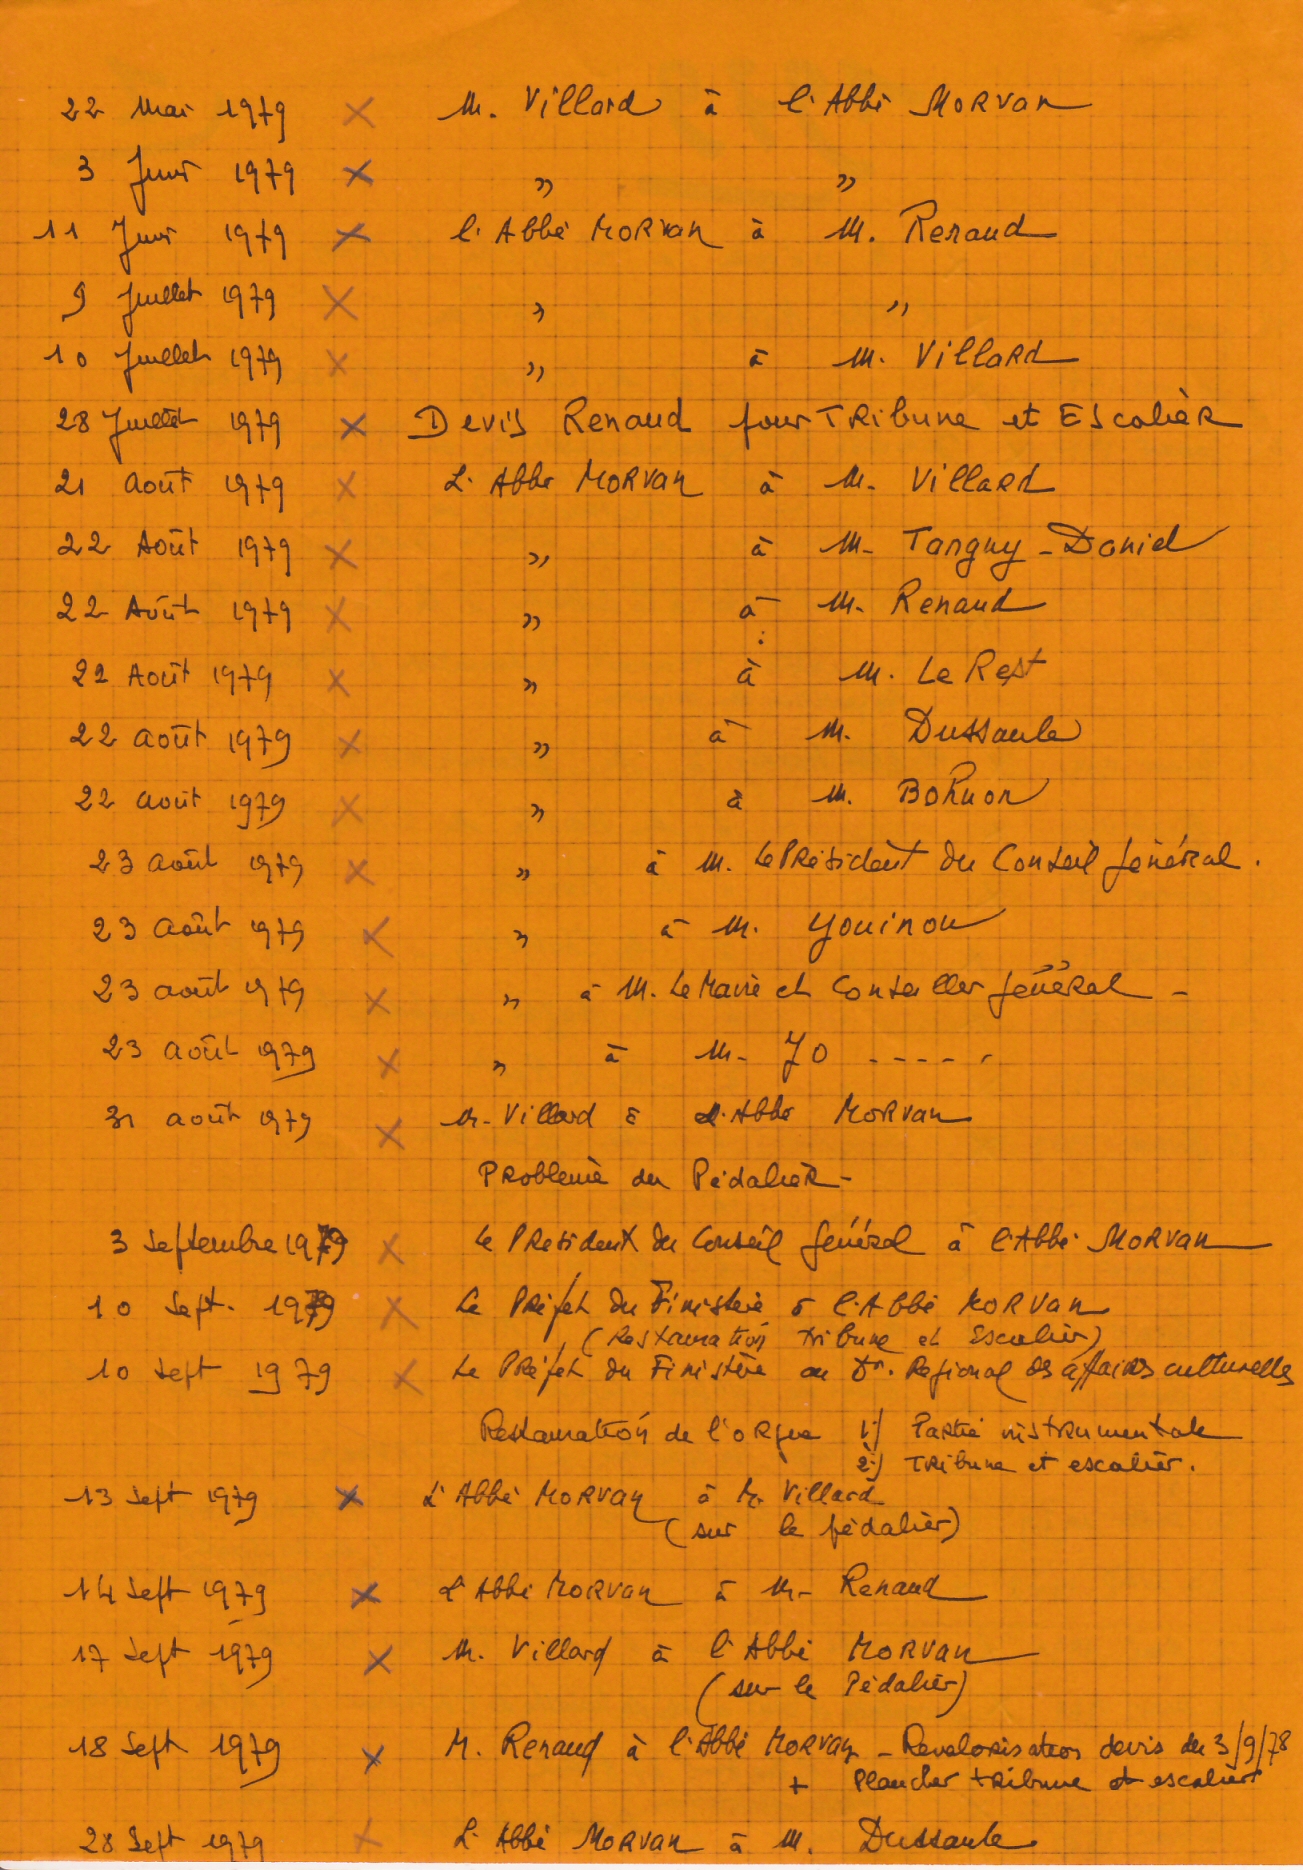 22 Mai 1979 × M. Villard à l'Abbé MORVAN
3 Juin 1979 × " "
11 Juin 1979 × l'Abbé MORVAN à M. Renaud
9 Juillet 1979 × " "
10 Juillet 1979 × " à M. Villard
28 Juillet 1979 × Devis Renaud pour Tribune et Escalier
21 août 1979 × L'Abbé MORVAN à M. Villard
22 Août 1979 × " à M. Tanguy-Daniel
22 Août 1979 × " à M. Renaud
22 Août 1979 × " à M. Le Rest
22 août 1979 × " à M. Dussaule
22 août 1979 × " à M.
23 août 1979 × " à M. Le Président du Conseil Général.
23 août 1979 × " à M. Youinou
23 août 1979 × " à M. Le Maire et Conseiller général -
23 août 1979 × " à M. JO -----
31 août 1979 × M. Villard à l'Abbé MORVAN
Problème du Pédalier -
3 Septembre 1979 × Le Président du Conseil Général à l'Abbé MORVAN
10 Sept. 1979 × Le Préfet du Finistère à l'Abbé MORVAN
(Restauration tribune et Escalier)
10 Sept 1979 × Le Préfet du Finistère au Dr. Régional des affaires culturelles
Restauration de l'orgue 1) Partie instrumentale
2) Tribune et escalier.
13 Sept 1979 × L'Abbé MORVAN à M. Villard
(sur le pédalier)
14 Sept 1979 × L'Abbé MORVAN à M. Renaud
17 Sept 1979 × M. Villard à l'Abbé MORVAN
(sur le Pédalier)
18 Sept 1979 × M. Renaud à l'Abbé MORVAN - Revalorisation devis du 3/9/78
+ Plancher tribune et escalier
28 Sept 1979 × L'Abbé MORVAN à M. Dussaule